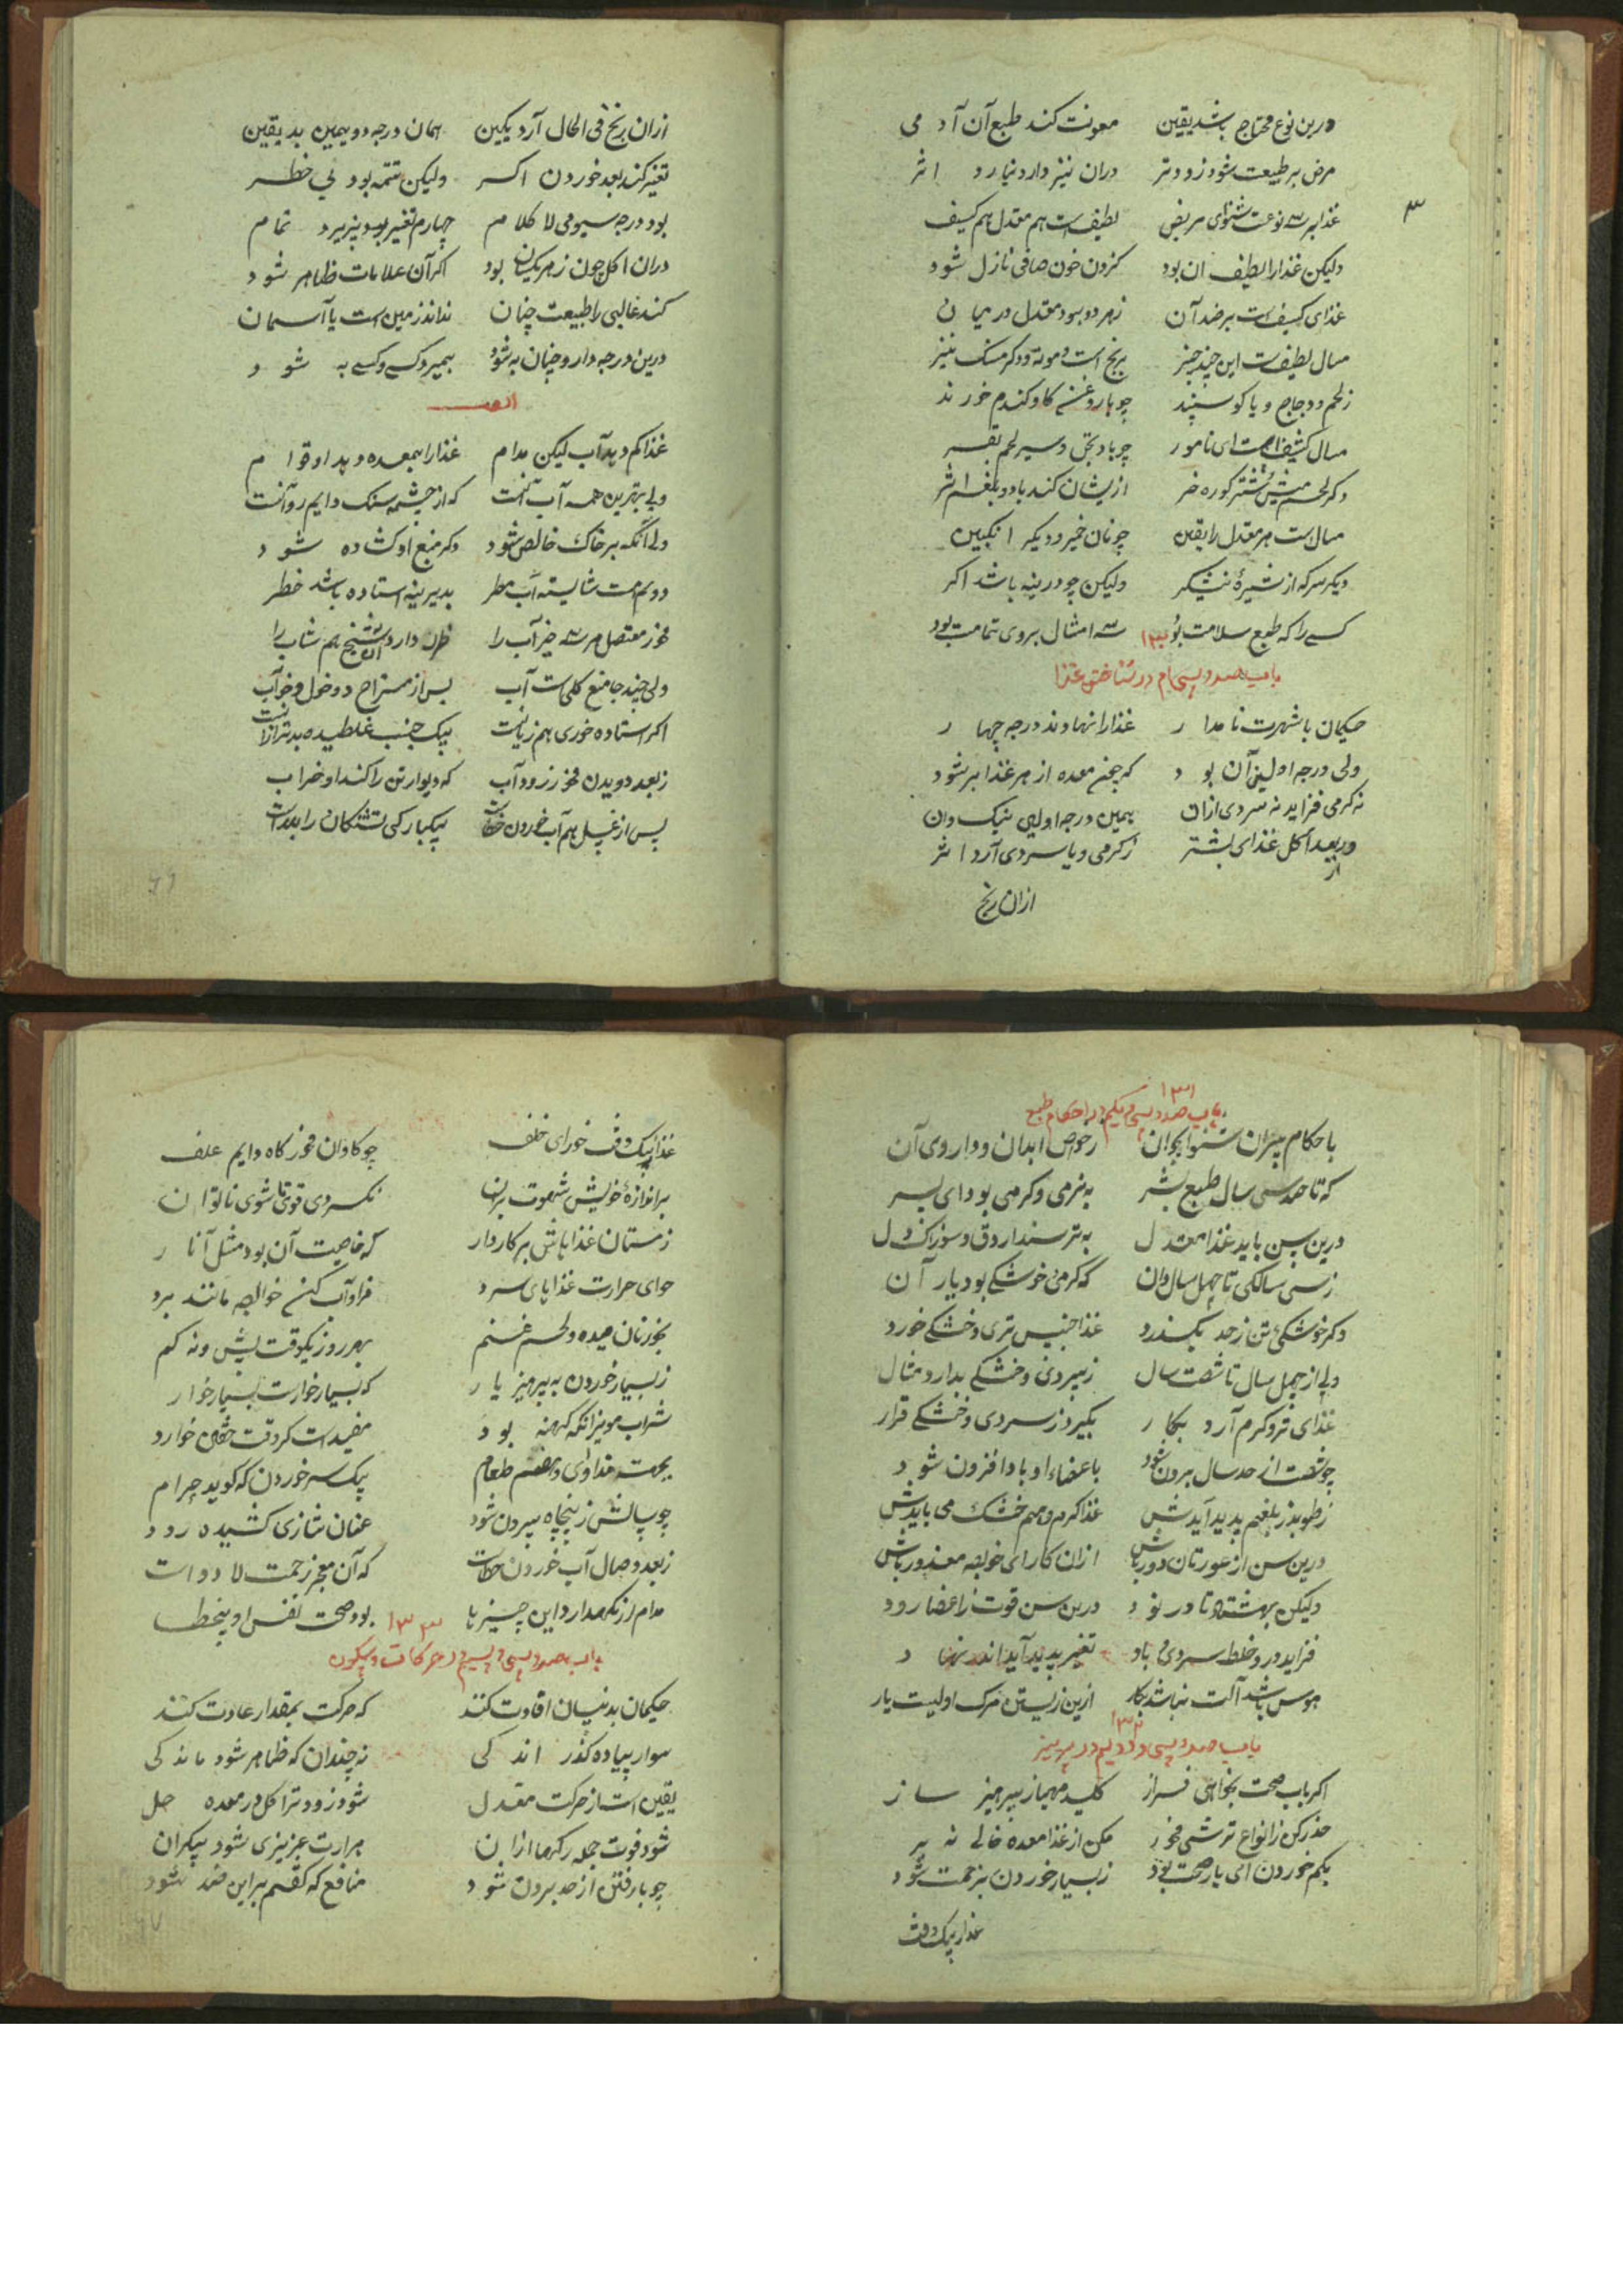 درین نوع محتاج باشد یقین معونت کند طبع آن آدمی
مرض بر طبیعت شود زودتر دران نیز دارو نیارد اثر
۳
غذا بر سه نوعست شنوای مریض لطیف است هم معتدل هم کسیف
ولیکن غذا را لطیف ان بود کزون خون صافی نازل شود
غذای کسیف است بر ضد آن زهر دو بود معتدل در میان
مسال لطیفست این چند چیز برنج است و مونه ودکر مسک نیز
زلحم ودجاج و یا کوسپند چو با روغن کاو کندم خورند
مسال کشیف است ای نامور چو بادنجان وسیر لحم بقر
دکر لحم میش شتر کوره خر ازیشان کند باد و بلغم اثر
مسال ست هر معتدل را یقین چو نان خمیر ودیکر انکبین
دیکر سرکه از شیرهٔ نیشکر ولیکن چو درینه باشد اکر
کسے را که طبع سلامت بود سه امثال بروی تمامت بود
۱۳۰
باب صد و سی ام در شناختن غذا
حکیمان با شهرت نامدار غذا را نهادند درجه چهار
ولی درجه اولین آن بود که چون معده از هر غذا پر شود
نه کرمی فزاید نه سردی ازان همین درجه اولین نیک دان
وربعد از اکل غذای بشتر زکرمی ویا سردی آرد اثر
ازان رنج
ازان رنج فی الحال آرد یکین همان درجه دویمین بد یقین
تغیر کند بعد خوردن اکسر ولیکن تتمه بود بی خطر
بود درجه سیومی لا کلام چهارم تغیر بود پزیرد تمام
دران اکل چون زهر یکسان بود اکر آن علامات ظاهر شود
کند غالبی را طبیعت چنان نداند زمین است یا آسمان
درین درجه دارو چنان به شود بمیرد کسے وکسے به شود
غذا کم دهد آب لیکن مدام غذا را بمعده دهد او قوام
ولی بهترین همه آب آنست که از چشمه سنک دایم روانست
ولی آنکه بر خاک خالص شود دکر منبع او کشاده شود
دویم هست شایسته آب مطر بدیرینه استاده باشد خطر
ولی چند جا منع کلی ست آب پس از مستراح و دخول و خواب
اکر استاده خوری هم زیانست بیک جنب غلطیده بدتر ازانست
زبعد دویدن مخور زود آب که دیوار تن را کند او خراب
پس از غسل هم آب خوردن خطاست بیکبارکی تشنکان را بلاست
۱۳۱
باب صد و سی و یکم در احکام طبع
باحکام پیران شنو ای جوان زحوص ابدان وداروی آن
که تا حد سی سال طبع بشر به نرمی وکرمی بود ای پسر
درین سن باید غذا معتدل به ترسند از دق و سوزاک و دل
زسی سالکی تا چهل سال دان که کرمی خوشکے بود یار آن
دکر خوشکئ تن زحد بکذرد غذا جنیس تری و خشکے خورد
ولی از چهل سال تا شصت سال زسردی وخشکے بدارد مثال
غذای تر وکرم آرد بکار بکیرد زسردی وخشکے قرار
چو شصت از حد سال برون شود باعضاء او باد افزون شود
زطوبذ زبلغم پدید آیدش غذا کرم وهم خشک می بایدش
درین سن از عورتان دور باش ازان کار ای خواجه معذور باش
ولیکن بهشتاد تا در نود درین سن قوت زاعضا رود
فزاید درو خلط سردی باد تغیر پدید آید اندر نهاد
هوس باشد آلت نباشد بکار ازین زیستن مرک اولیست یار
۱۳۲
باب صد و سی و دویم در پرهیز
اکر باب صحت بخواهی فراز کلید مهماز پرهیز ساز
حذر کن زانواع ترشی مخور مکن از غذا معده خالی نه پر
بکم خوردن ای یار صحت بود زبسیار خوردن بزحمت شود
غذا نیک وقت
غذا نیک وقت خور ای خلف چو کاوان مخور کاه دایم علف
بر اندازهٔ خویش شهوت بران نکردی قوی تا شوی ناتوان
زمستان غذاهاش بر کار دار که خاصیت آن بود مثل آنار
حوای حرارت غذاهای سرد فرا وآب کن خواجه مانند برد
بخور نان میده ولحم غنم بهر روز یکوقت بیش ونه کم
زبسیار خوردن به پرهیز یار که بسیار خوارست بسیار خوار
شراب مویز انکه کهنه بود مفید است کر وقت خفتن خورد
بجهت مداوای وهضم طعام پیک سر خوردن که کوید حرام
چو سالش زپنجاه بیرون شود عنان شتازی کشیده رود
زبعد وصال آب خوردن خطاست که آن معجز زحمت لا دواست
مدام ار نکهدارد این چیزها بود صحت نفس او بیخطا
۱۳۳
باب صد و سی و سیم در حرکات وسکون
حکیمان بدنیسان افادت کنند که حرکت بمقدار عادت کنند
سوار پیاده کذر اندکی نه چندان که ظاهر شود ماندکی
یقین است از حرکت معتدل شود زودتر اکل در معده حل
شود قوت جمله رکها ازان حرارت عزیزی شود بیکران
چو بار رفتن از حد برون شود منافع که کفتم بر این ضد شود